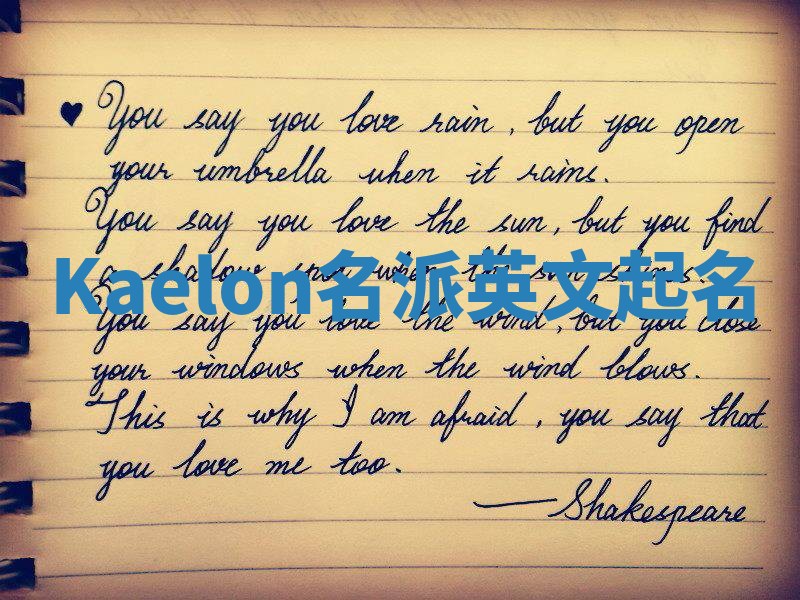 ♥ You say you love rain, but you open
your umbrella when it rains.
You say you love the sun, but you find
a shadow spot when the sun shines.
Kaelon名派英文起名
You say you love the wind, but you close
your windows when the wind blows.
This is why I am afraid, you say that
you love me too.
—Shakespeare